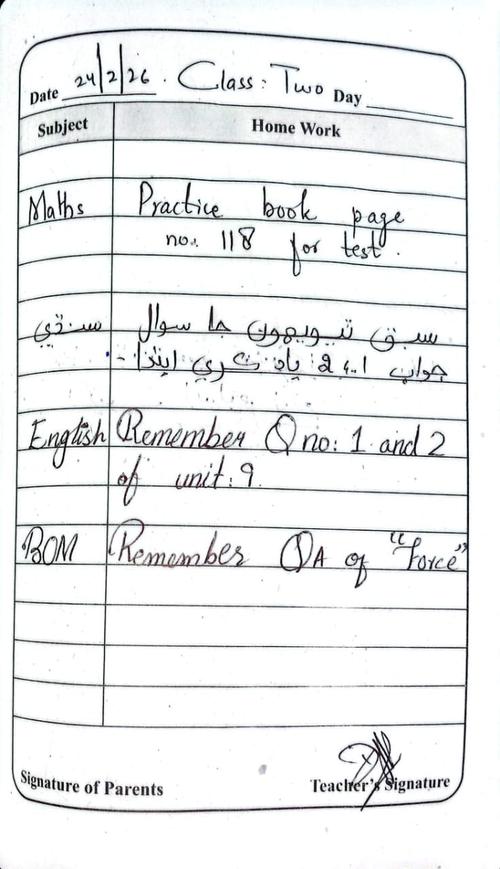 Date 24/2/26 . Class: Two Day
Subject Home Work
Maths Practice book page
no. 118 for test.
سنڌي سبق ٽيويهون جا سوال
جواب 1 ۽ 2 ياد ڪري ايندا -
English Remember Q no: 1 and 2
of unit: 9.
BOM Remember QA of "Force"
Signature of Parents Teacher's Signature